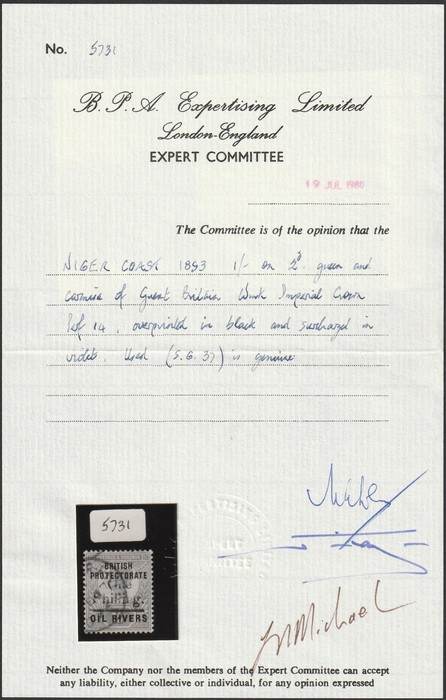 No. 5731
B. P. A. Expertising Limited
London-England
EXPERT COMMITTEE
19 JUL 1980
The Committee is of the opinion that the
NIGER COAST 1893 1/- on 2d. green and
carmine of Great Britain Wmk Imperial Crown
Perf 14, overprinted in black and surcharged in
violet. Used (S.G. 37) is genuine
5731
BRITISH
PROTECTORATE
One
Shilling
OIL RIVERS
Michael
Neither the Company nor the members of the Expert Committee can accept
any liability, either collective or individual, for any opinion expressed